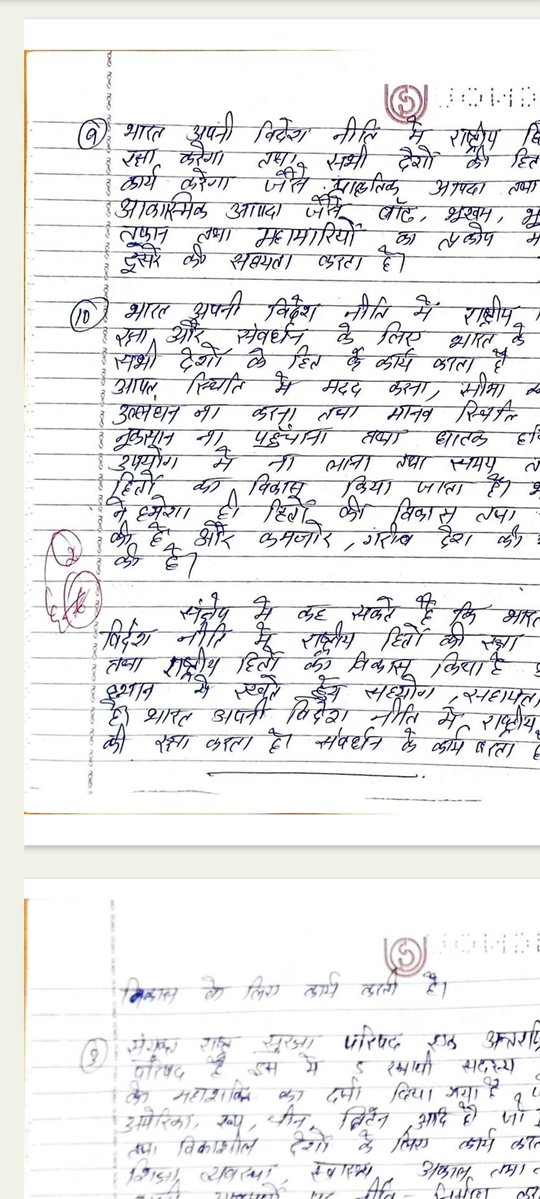 9 भारत अपनी विदेश नीति में राष्ट्रीय
रक्षा करेगा तथा सभी देशों की हित
कार्य करेगा जैसे आपदा तथा
आकास्मिक आपदा जैसे बाढ़, भूखम,
तुफान तथा महामारियों का प्रकोप
दूसरे की सहायता करता है।
10 भारत अपनी विदेश नीति में राष्ट्रीय
रक्षा और संवर्धन के लिए भारत के
सभी देशों के हित के कार्य करता है
आपत स्थिति में मदद करना, सीमा
उल्लंघन ना करना तथा मानव स्थिति
नुकसान ना पहुंचाना तथा घातक
उपयोग में ना लाना तथा समय
हितों का विकास किया जाता है।
ने हमेशा ही हितों की विकास तथा
की है और कमजोर, गरीब देश की
की है।
संक्षेप में कह सकते है कि भारत
विदेश नीति में राष्ट्रीय हितों की रक्षा
तथा राष्ट्रीय हितों का विकास किया है
स्थान में रखते हुये सहयोग, सहायता
है। भारत अपनी विदेश नीति में राष्ट्रीय
की रक्षा करता है। संवर्धन के कार्य करता है
विकास के लिए कार्य करती है।
3 संयुक्त राष्ट्र सुरक्षा परिषद एक
परिषद है इस में 5 स्थायी सदस्य
के महाशक्ति का दर्जा दिया गया है
अमेरिका, रूस, चीन, ब्रिटेन आदि है जो
तथा विकाशील देशों के लिए कार्य
शिक्षा, व्यवस्था, स्वास्थ्य अकाल तथा
पर नीति-निर्माण